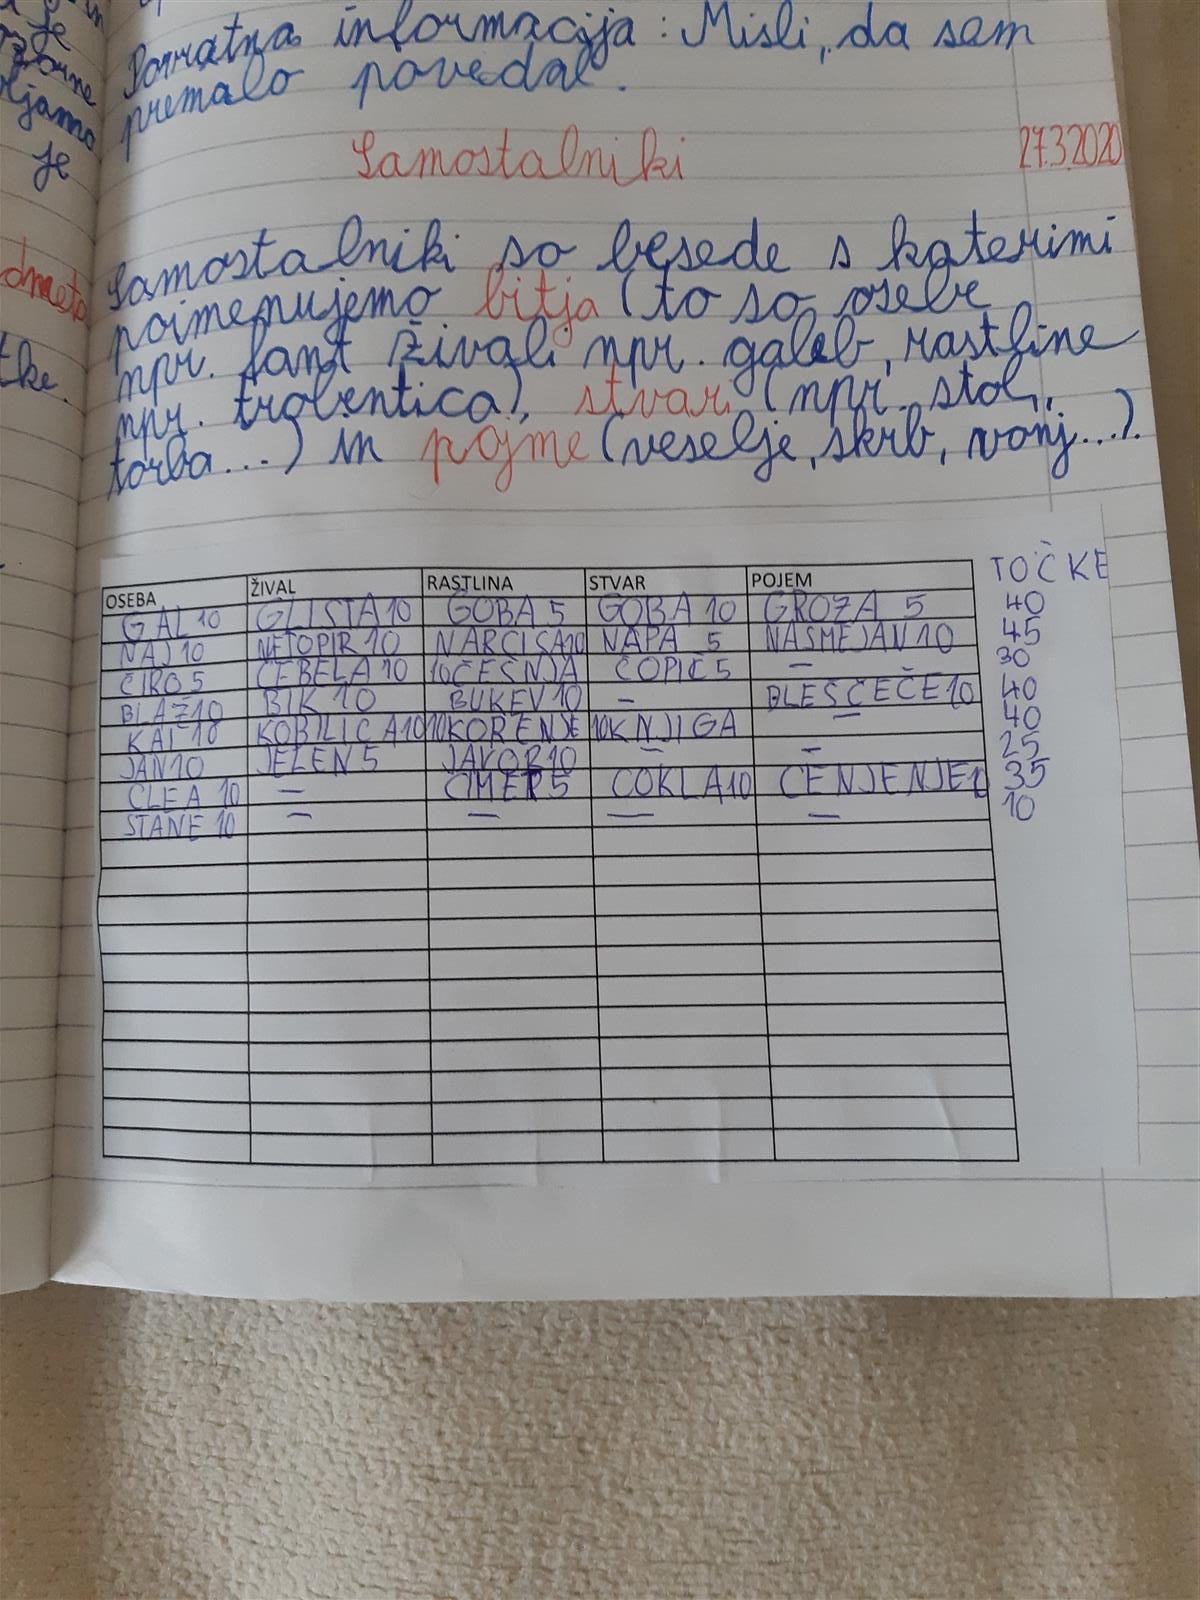 je
Povratna informacija: Misli, da sem
premalo povedal.
Samostalniki 27.3.2020
Samostalniki so besede s katerimi
poimenujemo bitja (to so osebe
npr. fant živali npr. galeb, rastline
npr. trobentica), stvari (npr. stol,
torba...) in pojme (veselje, skrb, vonj...).
TOČKE
OSEBA ŽIVAL RASTLINA STVAR POJEM
GAL 10 GLISTA 10 GOBA 5 GOBA 10 GROZA 5 40
NAJ 10 NETOPIR 10 NARCISA 10 NAPA 5 NASMEJAN 10 45
CIRO 5 ČEBELA 10 10 ČEŠNJA ČOPIČ 5 – 30
BLAŽ 10 BIK 10 BUKEV 10 – BLEŠČEČE 10 40
KAI 10 KOBILICA 10 10 KORENJE 10 KNJIGA – 40
JAN 10 JELEN 5 JAVOR 10 – – 25
CLEA 10 – CIMET 5 COKLA 10 CENJENJE 10 35
STANE 10 – – – – 10